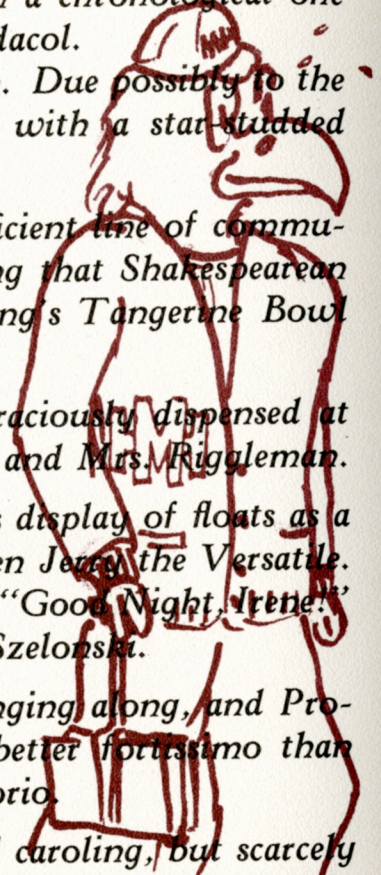 a chronological one
dacol.
. Due possibly to the
with a star-studded
icient line of commu-
ng that Shakespearean
ng's Tangerine Bowl
raciously dispensed at
and Mrs. Riggleman.
s display of floats as a
en Jerry the Versatile.
"Good Night, Irene!"
Szelonski.
M
nging along, and Pro-
better fortissimo than
orio.
caroling, but scarcely